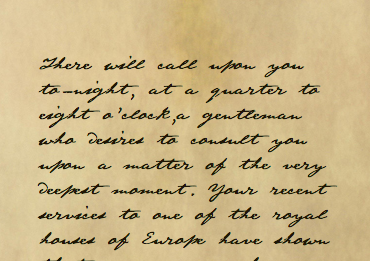 There will call upon you
to-night, at a quarter to
eight o'clock, a gentleman
who desires to consult you
upon a matter of the very
deepest moment. Your recent
services to one of the royal
houses of Europe have shown